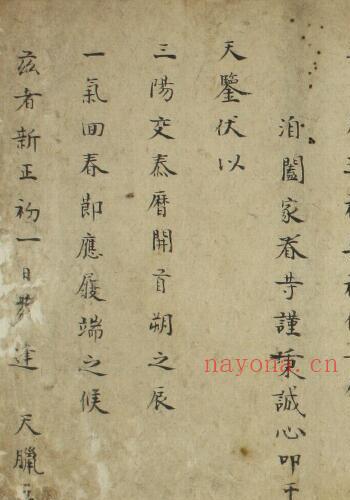 洎闔家眷等謹秉誠心叩干
天鑒伏以
三陽交泰曆開首朔之辰
一氣回春節應履端之候
兹者新正初一日恭逢 天臘
nayona.cn